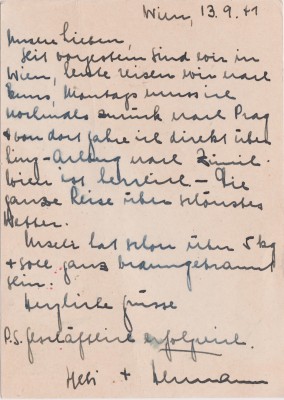 Wien, 13.9.41
Unsere Lieben,
Seit vorgestern sind wir in
Wien, heute reisen wir nach
Montags muss ich
nochmals zurück nach Prag
+ von dort fahre ich direkt über
Linz-Arlberg nach Zürich.
Wien ist herrlich - Die
ganze Reise über schönstes
Wetter.
hat schon über 5 kg
+ soll ganz braungebrannt
sein.
Herzliche Grüsse
P.S. Geschäftlich erfolgreich.
+ Hermann